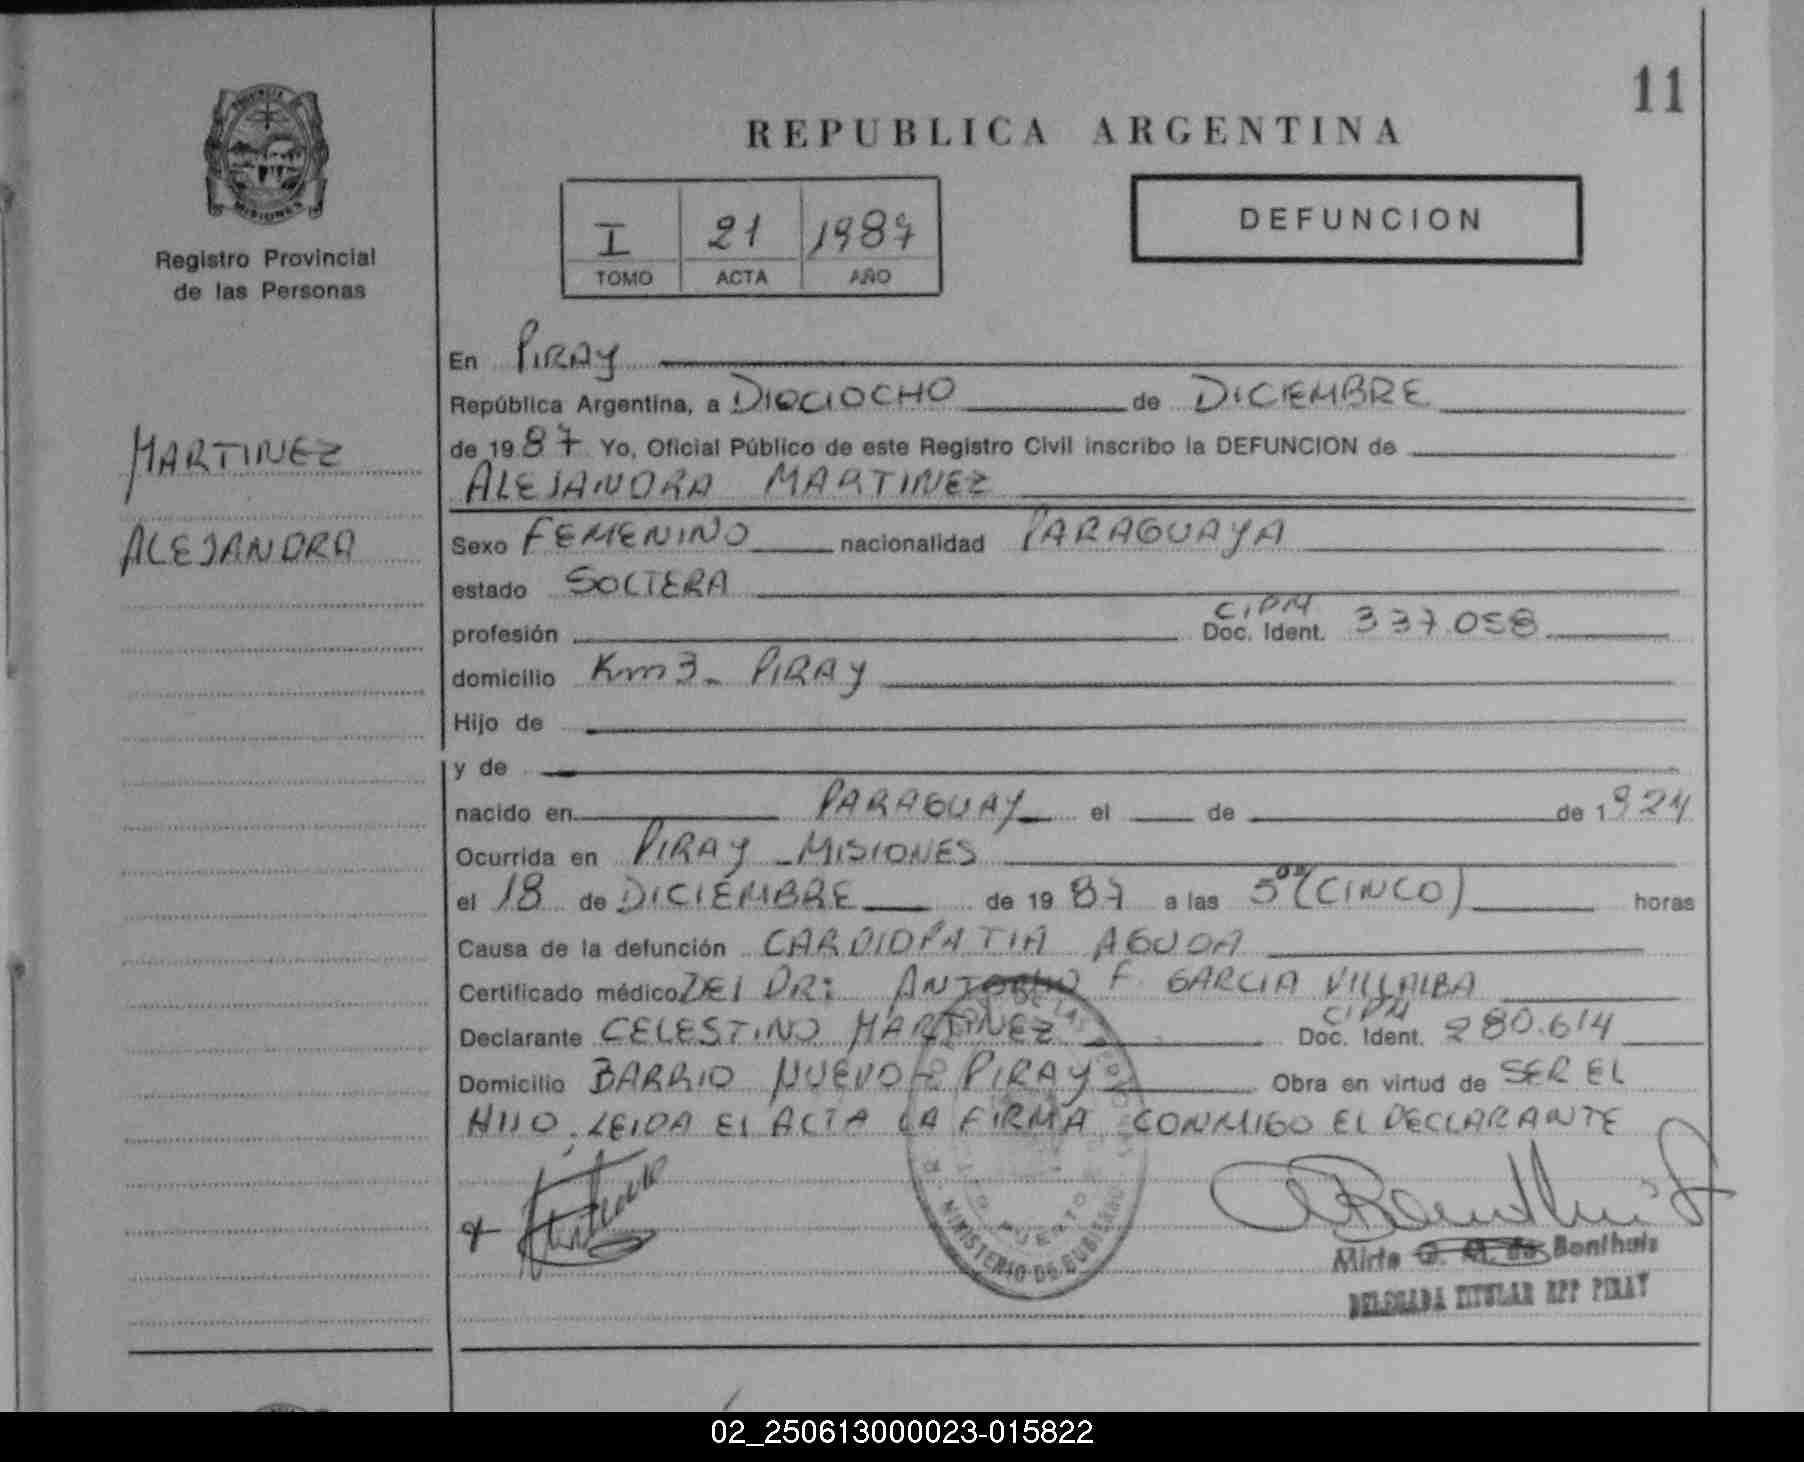 11
REPUBLICA ARGENTINA
PROVINCIA DE
MISIONES
Registro Provincial
de las Personas
I 21 1987
TOMO ACTA AÑO
DEFUNCION
MARTINEZ
ALEJANDRA
En PIRAY
República Argentina, a DIOCIOCHO de DICIEMBRE
de 1987 Yo, Oficial Público de este Registro Civil inscribo la DEFUNCION de
ALEJANDRA MARTINEZ
Sexo FEMENINO nacionalidad PARAGUAYA
estado SOLTERA
profesión Doc. Ident. CIPM 337.058
domicilio Km 3 - PIRAY
Hijo de
y de
nacido en PARAGUAY el de de 1924
Ocurrida en PIRAY - MISIONES
el 18 de DICIEMBRE de 1987 a las 5⁰⁰ (CINCO) horas
Causa de la defunción CARDIOPATIA AGUDA
Certificado médico DEl DR: ANTONIO F. GARCIA VILLALBA
Declarante CELESTINO MARTINEZ Doc. Ident. CIPM 280.614
Domicilio BARRIO NUEVO - PIRAY Obra en virtud de SER EL
HIJO. LEIDA El ACTA LA FIRMA CONMIGO EL DECLARANTE
MINISTERIO DE GOBIERNO
Mirta G. M. de Bonthuis
DELEGADA TITULAR RPP PIRAY
02_250613000023-015822